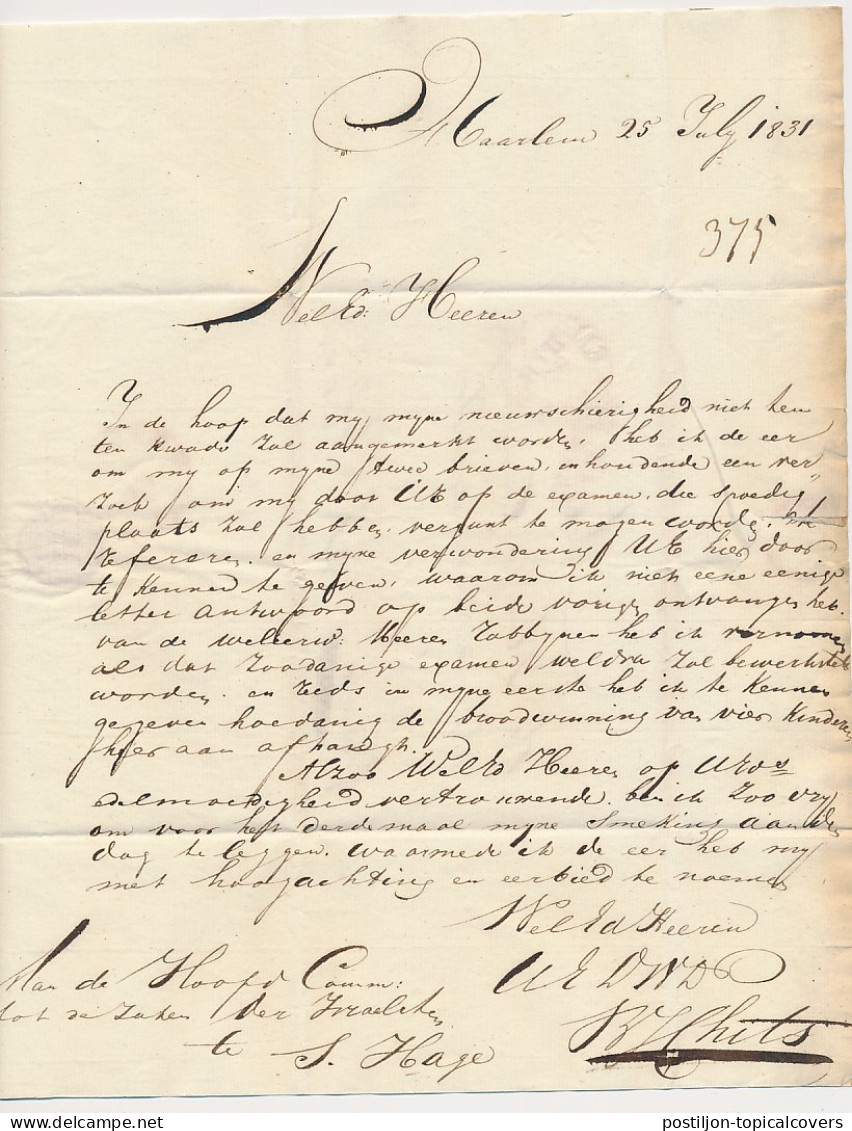 Haarlem 25 July 1831
375
Wel Ed: Heeren
In de hoop dat my myne nieuwschierigheid niet ten
ten kwade zal aangemerkt worden, heb ik de eer
om my op myne twee brieven, inhoudende een ver
zoek om my door UE op de examen, die spoedig
plaats zal hebben, vergunt te mogen worden, te
refereren, en myne verwondering UE hier door
te kennen te geven, waarom ik niet eene eenige
letter antwoord op beide vorige ontvangen heb.
van de weleerw: Heeren Rabbynen heb ik vernomen
als dat zoodanige examen weldra zal bewerkstelt
worden, en reeds in myne eerste heb ik te kennen
gegeven hoedanig de broodwinning van vier kinderen
hier aan afhangt.
Alzoo Wel Ed Heeren op
edelmoedigheid vertrouwende, ben ik zoo vry
om voor het derde maal myne smeking aan den
dag te leggen, waarmede ik de eer heb my
met hoogachting en eerbied te noemen
Wel Ed Heeren
UEDWD
Aan de Hoofd Comm:
tot de Zaken der Israeliten
te S. Hage
postiljon-topicalcovers